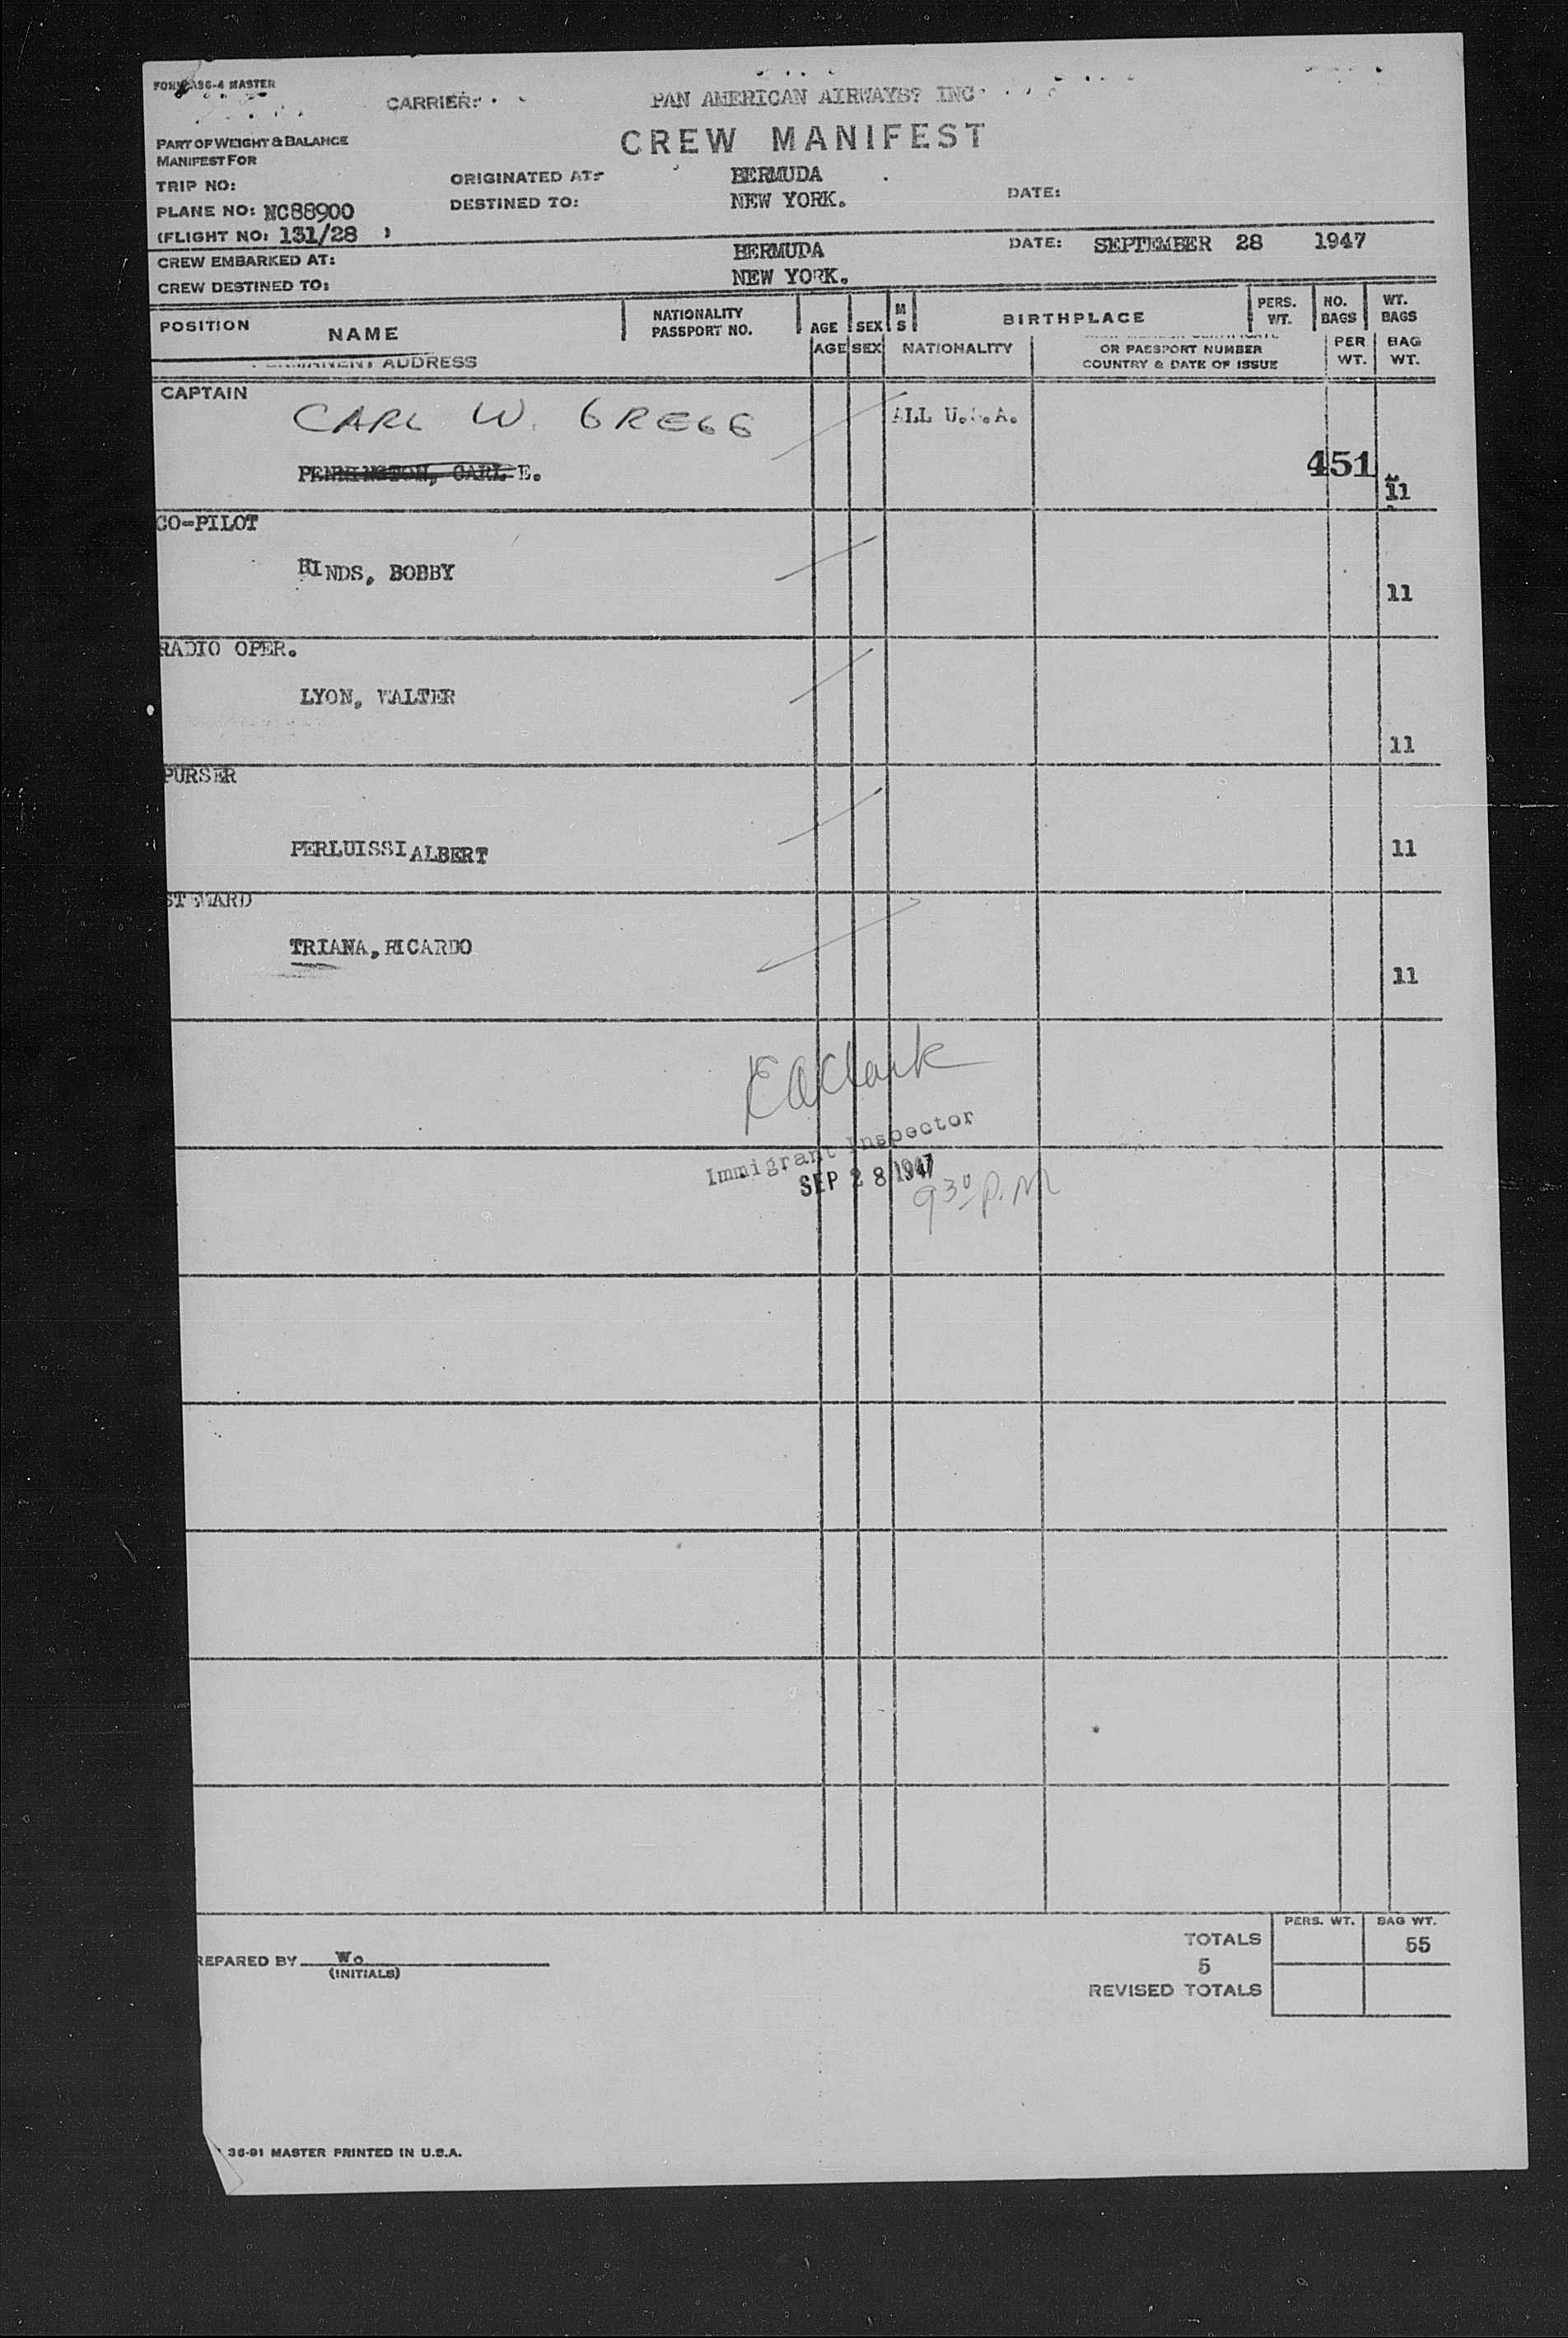 FORM A36-4 MASTER
CARRIER: PAN AMERICAN AIRWAYS? INC
CREW MANIFEST
PART OF WEIGHT & BALANCE
MANIFEST FOR
TRIP NO: ORIGINATED AT: BERMUDA
PLANE NO: NC88900 DESTINED TO: NEW YORK. DATE:
(FLIGHT NO: 131/28 )
CREW EMBARKED AT: BERMUDA DATE: SEPTEMBER 28 1947
CREW DESTINED TO: NEW YORK.
POSITION NAME NATIONALITY PASSPORT NO. AGE SEX M S BIRTHPLACE PERS. WT. NO. BAGS WT. BAGS
ADDRESS AGE SEX NATIONALITY OR PASSPORT NUMBER COUNTRY & DATE OF ISSUE PER WT. BAG WT.
CAPTAIN
CARL W. GREGG ALL U.S.A.
PENNINGTON, CARL E. 451 11
CO-PILOT
HINDS, BOBBY 11
RADIO OPER.
LYON, WALTER
11
PURSER
PERLUISSI ALBERT 11
STEWARD
TRIANA, RICARDO
11
EAClark
Immigrant Inspector
SEP 28 1947
9 30 P.M
PERS. WT. BAG WT.
TOTALS 55
5
REVISED TOTALS
REPARED BY Wo
(INITIALS)
36-91 MASTER PRINTED IN U.S.A.